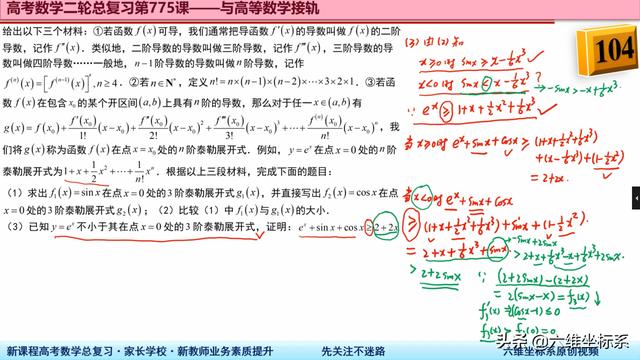 高考数学二轮总复习第775课——与高等数学接轨
104
给出以下三个材料：①若函数 f(x) 可导，我们通常把导函数 f′(x) 的导数叫做 f(x) 的二阶
导数，记作 f″(x)．类似地，二阶导数的导数叫做三阶导数，记作 f‴(x)，三阶导数的导
数叫做四阶导数……一般地，n−1阶导数的导数叫做 n 阶导数，记作
f⁽ⁿ⁾(x)=[f⁽ⁿ⁻¹⁾(x)]′, n≥4．②若 n∈N*，定义 n!=n×(n−1)×(n−2)×⋯×3×2×1．③若函
数 f(x) 在包含 x₀ 的某个开区间 (a,b) 上具有 n 阶的导数，那么对于任一 x∈(a,b) 有
g(x)=f(x₀)+f′(x₀)/1!(x−x₀)+f″(x₀)/2!(x−x₀)²+f‴(x₀)/3!(x−x₀)³+⋯+f⁽ⁿ⁾(x₀)/n!(x−x₀)ⁿ，我
们将 g(x) 称为函数 f(x) 在点 x=x₀ 处的 n 阶泰勒展开式．例如，y=eˣ 在点 x=0 处的 n 阶
泰勒展开式为 1+x+1/2x²+⋯+1/n!xⁿ．根据以上三段材料，完成下面的题目：
（1）求出 f₁(x)=sin x 在点 x=0 处的3阶泰勒展开式 g₁(x)，并直接写出 f₂(x)=cos x 在点
x=0 处的3阶泰勒展开式 g₂(x)；（2）比较（1）中 f₁(x) 与 g₁(x) 的大小．
（3）已知 y=eˣ 不小于其在点 x=0 处的3阶泰勒展开式，证明：eˣ+sin x+cos x≥2+2x
(3) 由(2)知
x≥0时 sinx≥x−1/6x³
x<0时 sinx<x−1/6x³ ?
→ −sinx>−x+1/6x³
∵ eˣ≥1+x+1/2x²+1/6x³
当x≥0时 eˣ+sinx+cosx≥(1+x+1/2x²+1/6x³)
+(x−1/6x³)+(1−1/2x²)
=2+2x.
当x<0时 eˣ+sinx+cosx
≥(1+x+1/2x²+1/6x³)+sinx+(1−1/2x²)
=2+x+1/6x³+sinx
−sinx+2sinx
>2+x+1/6x³−x+1/6x³+2sinx
>2+2sinx
∵ (2+2sinx)−(2+2x)
=2(sinx−x)=f₃(x)↓
新课程高考数学总复习·家长学校·新教师业务素质提升
先关注不迷路
六维坐标系原创视频
头条@六维坐标系